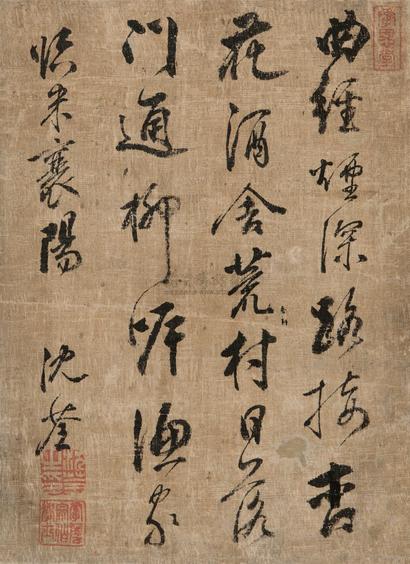 曲徑煙深路接杏
花酒舍荒村日落
門通柳岸漁家
臨米襄陽 沈荃